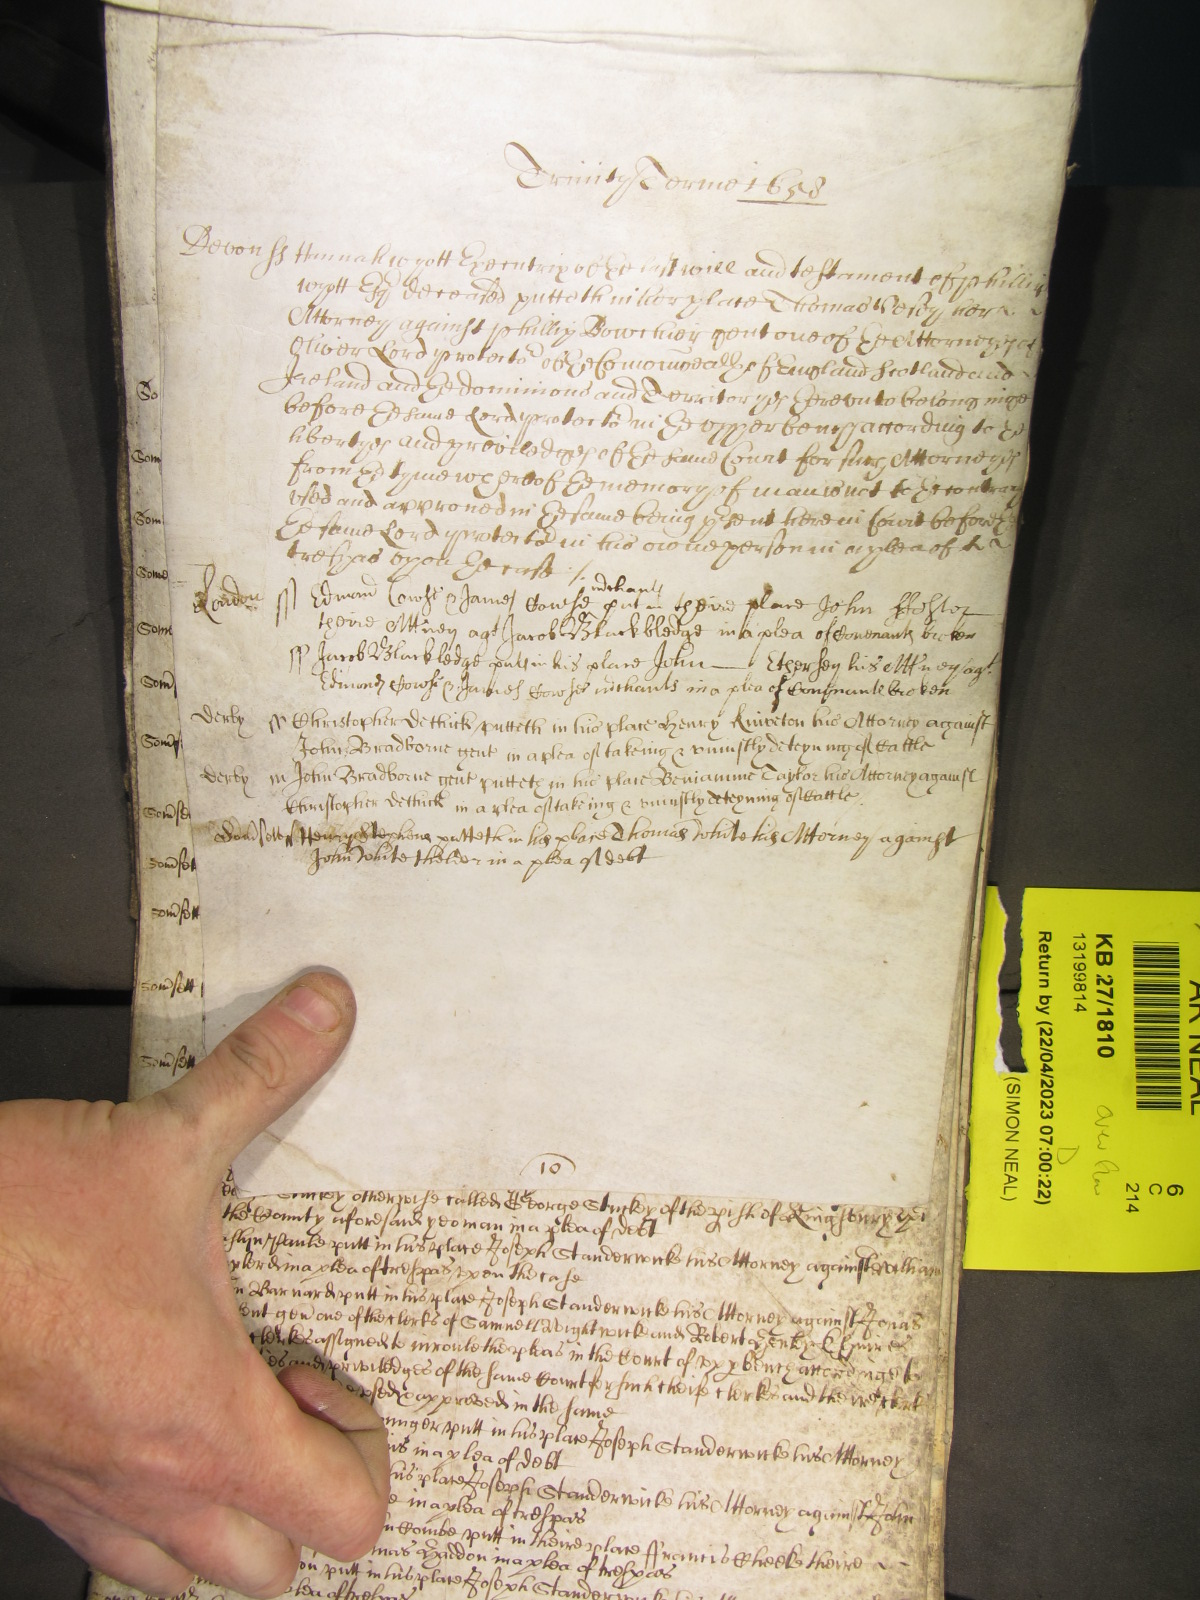 Trinity Terme 1658
Devon ss Hannah wyott Executrix of the last will and testament of Phillip
wyott Esq deceased putteth in her place Thomas Vesey her
Attorney against Phillip Bowchier gent one of the Attorneyes of
Oliver Lord protector of the Comonwealth of England Scotland and
Ireland and the dominions and Territoryes thereunto belonginge
before the same Lord protector in the upper bench according to the
libertyes and previledges of the same Court for such Attorneyes
from the tyme whereof the memory of man is not to the contrary
used and approved in the same being present here in Court before
the same Lord protector in his owne person in a plea of
trespas upon the case
London ss Edmond Cowse & James Cowse mchants put in theire place John
theire Attney agt Jacob Blackbledge in a plea of Covenants broken
ss Jacob Blackbledge puts in his place John Ethersey his Attney agt
Edmond Cowse & James Cowse mchants in a plea of Covenants broken
Derby ss Christopher Dethick putteth in his place Henry Kniveton his Attorney against
John Bradborne gent in a plea of takeing & uniustly deteyning of Cattle
Derby ss John Bradborne gent putteth in his place Beniamine Taylor his Attorney against
Christopher Dethick in a plea of takeing & uniustly deteyning of Cattle
Somsett ss Henry Stephens putteth in his place Thomas White his Attorney against
John White the elder in a plea of debt
So
Som
Som
Some
Some
Som
Somse
Somse
Somsett
Somsett
Somsett
Somsett
10
Stuckey otherwise called George Stuckey of the pish of Kingsbury
the County aforesaid yeoman in a plea of debt
putt in his place Joseph Standerwicke his Attorney against William
in a plea of trespas upon the case
Barnard putt in his place Joseph Standerwicke his Attorney against Jonas
gen one of the clerks of Samuell Wightwicke and Robert Henley Esquires
clerkes assigned to inroule the pleas in the Court of upp bench accordinge to
and priviledges of the same Court for such cheife clerkes and their clerks
used & approved in the same
younger putt in his place Joseph Standerwicke his Attorney
in a plea of debt
his place Joseph Standerwicke his Attorney against John
in a plea of trespas
Combe putt in theire place Francis Cheeke theire
Haddon in a plea of trespas
putt in his place Joseph Standerwicke
plea of trespas
KB 27/1810
13199814
Return by (22/04/2023 07:00:22)
(SIMON NEAL)
6
C
214